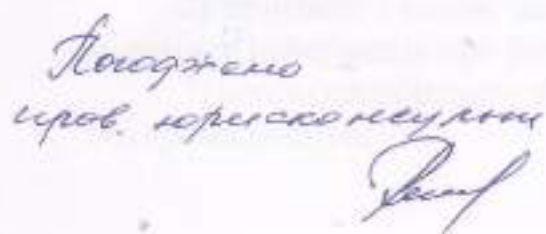 Погоджено
пров. юрисконсульт